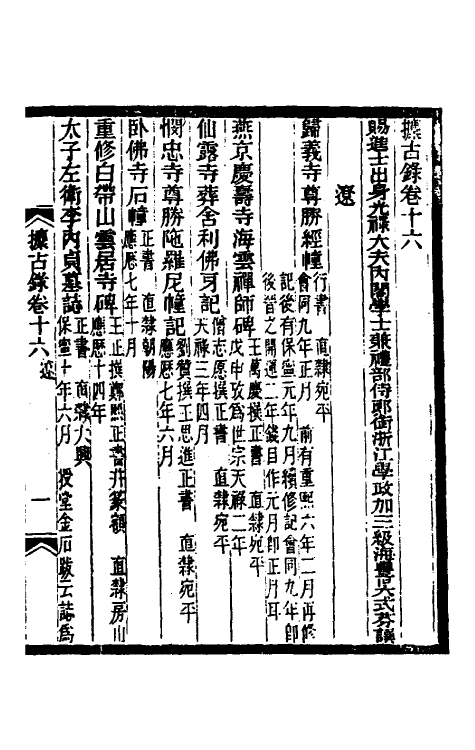 攈古錄卷十六
賜進士出身光祿大夫內閣學士兼禮部侍郎銜浙江學政加三級海豐吳式芬譔
遼
歸義寺尊勝經幢
行書　直隸宛平
會同九年正月　前有重熙六年二月再修
記後有保寧元年九月續修記會同九年卽
後晉之開運二年錢目作元月卽正月耳
燕京慶壽寺海雲禪師碑
王萬慶撰正書　直隸宛平
戊申攷爲世宗天祿二年
仙露寺葬舍利佛牙記
僧志愿撰正書　直隸宛平
天祿三年四月
憫忠寺尊勝陁羅尼幢記
劉贊撰王思進正書　直隸宛平
應歷七年六月
臥佛寺石幢
正書　直隸朝陽
應歷七年十月
重修白帶山雲居寺碑
王正撰鄭熙正書并篆額　直隸房山
應歷十四年
太子左衛李內貞墓誌
正書　直隸大興
保寧十年六月　授堂金石跋云誌爲
攈古錄卷十六　遼
一